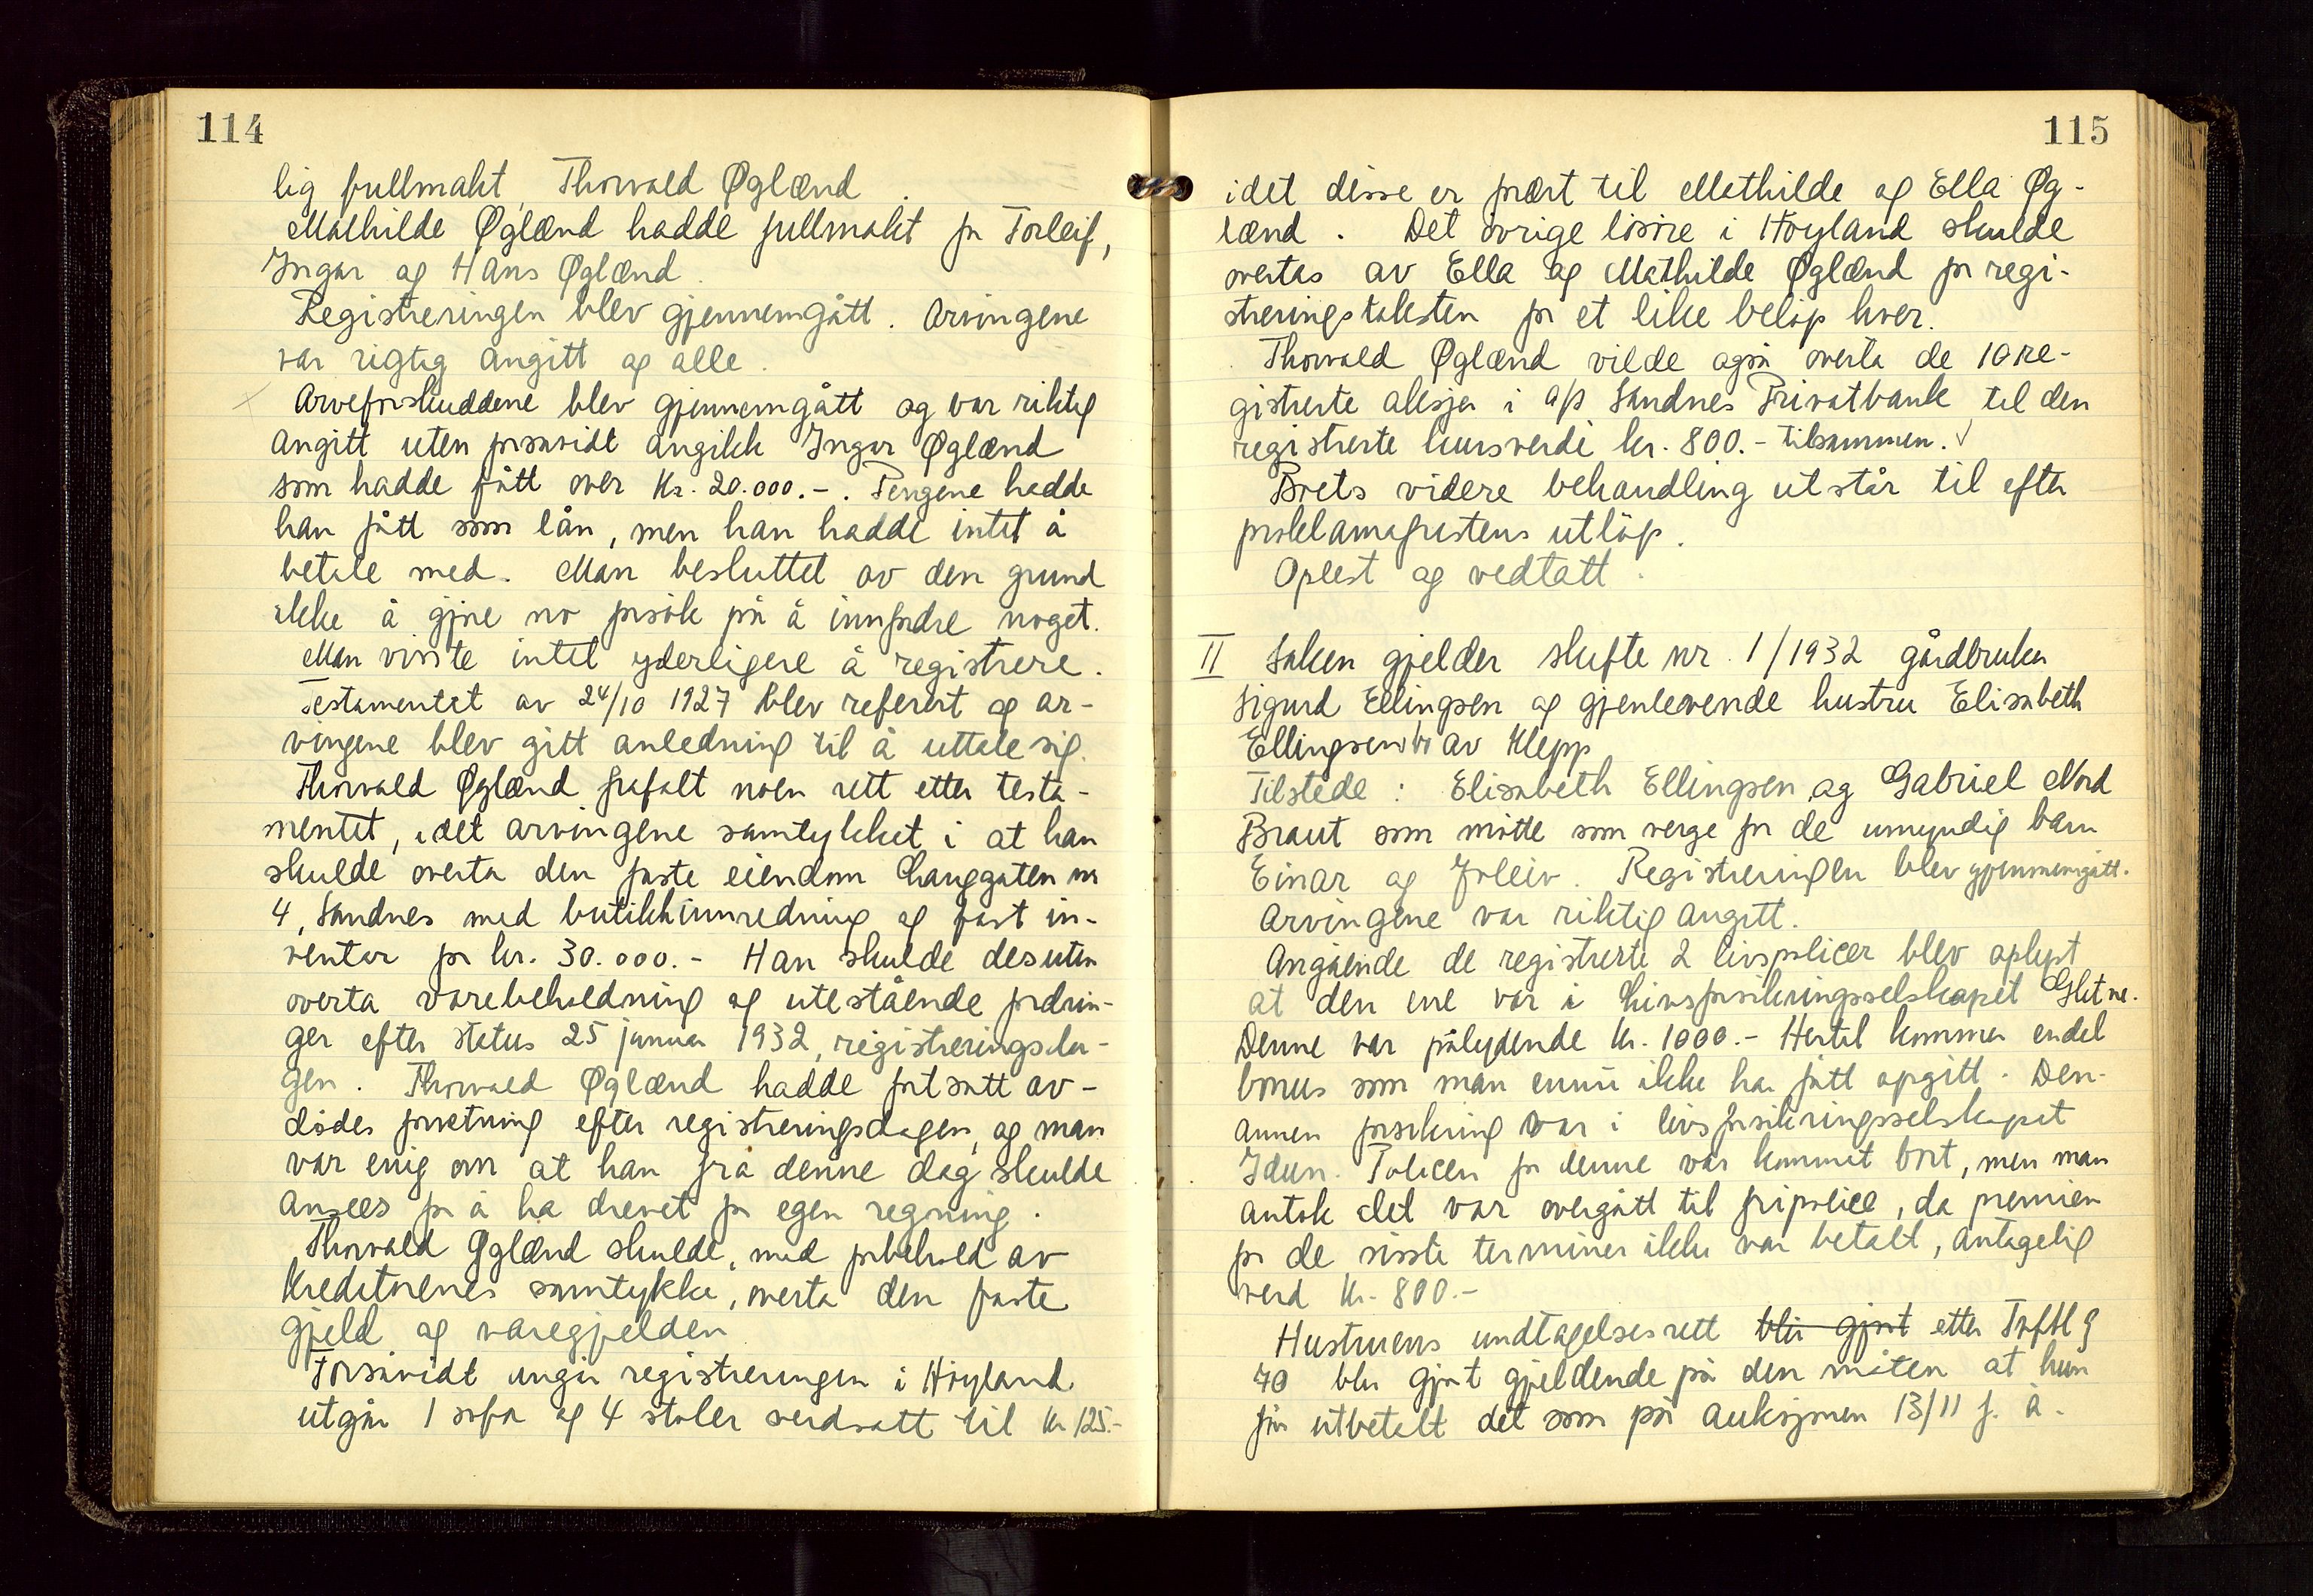 114
lig fullmakt, Thorvald Øglænd.
Mathilde Øglænd hadde fullmakt for Torleif,
Ingvar og Hans Øglænd.
Registreringen blev gjennemgått. Arvingene
var rigtig angitt og alle.
Arveforskuddene blev gjennemgått og var riktig
angitt uten forsåvidt angikk Ingvar Øglænd
som hadde fått over Kr. 20.000.-. Pengene hadde
han fått som lån, men han hadde intet å
betale med. Man besluttet av den grund
ikke å gjøre no forsøk på å innfordre noget.
Man visste intet yderligere å registrere.
Testamentet av 24/10 1927 blev referert og ar-
vingene blev gitt anledning til å uttale sig.
Thorvald Øglænd frafalt noen rett etter testa-
mentet, idet arvingene samtykket i at han
skulde overta den faste eiendom Langgaten nr
4, Sandnes med butikkinnredning og fast in-
ventar for kr. 30.000.- Han skulde desuten
overta varebeholdning og utestående fordrin-
ger efter status 25 januar 1932, registreringsda-
gen. Thorvald Øglænd hadde fortsatt av-
dødes forretning efter registreringsdagen, og man
var enig om at han fra denne dag skulde
ansees for å ha drevet for egen regning.
Thorvald Øglænd skulde, med forbehold av
kreditorenes samtykke, overta den faste
gjeld og varegjelden
Forsåvidt angår registreringen i Höyland
utgår 1 sofa og 4 stoler verdsatt til kr 125.-
115
idet disse er ført til Mathilde og Ella Øg-
lænd. Det övrige lösöre i Höyland skulde
overtas av Ella og Mathilde Øglænd for regi-
streringstaksten for et like belöp hver.
Thorvald Øglænd vilde også overta de 10 re-
gistrerte aksjer i a/s Sandnes Privatbank til den
registrerte kursverdi kr. 800.- tilsammen. √
Boets videre behandling utstår til efter
proklamafristens utlöp.
Oplest og vedtatt.
II Saken gjelder skifte nr. 1/1932 gårdbruker
Sigurd Ellingsen og gjenlevende hustru Elisabeth
Ellingsens bo av Klepp
Tilstede: Elisabeth Ellingsen, og Gabriel Nord
Braut som mötte som verge for de umyndig barn
Einar og Joleiv. Registreringen blev gjennemgått.
Arvingene var riktig angitt.
Angående de registrerte 2 livspolicer blev oplyst
at den ene var i Livsforsikringsselskapet Glitne.
Denne var pålydende kr. 1000.- Hertil kommer endel
bonus som man ennu ikke har fått opgitt. Den
annen forsikring var i livsforsikringsselskapet
Idun. Policen for denne var kommet bort, men man
antok det var overgått til fripolice, da premien
for de sisste terminer ikke var betalt, antagelig
verd kr. 800.-
Hustruens undtagelsesrett blir gjort etter Tvfbl §
70 blir gjort gjeldende på den måten at hun
får utbetalt det som på auksjonen 13/11 f. å.